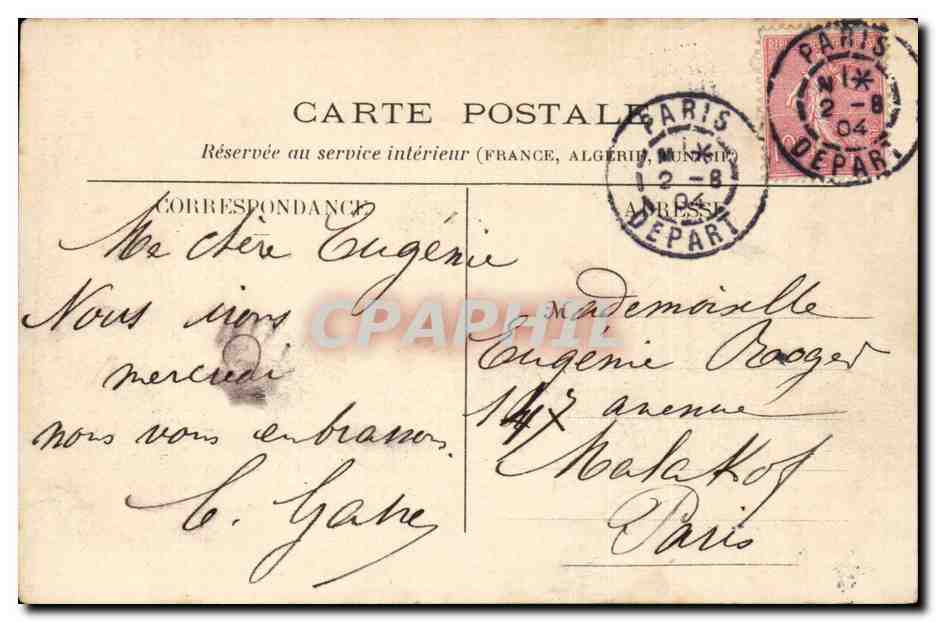 CARTE POSTALE
Réservée au service intérieur (FRANCE, ALGÉRIE, TUNISIE)
PARIS
1*
2 -8
04
DEPART
PARIS
1*
2 -8
04
DEPART
CORRESPONDANCE
Ma chère Eugénie
Nous irons
mercredi
nous vous embrassons
ADRESSE
Mademoiselle
Eugénie Roger
147 avenue
Malakof
Paris
CPAPHIL